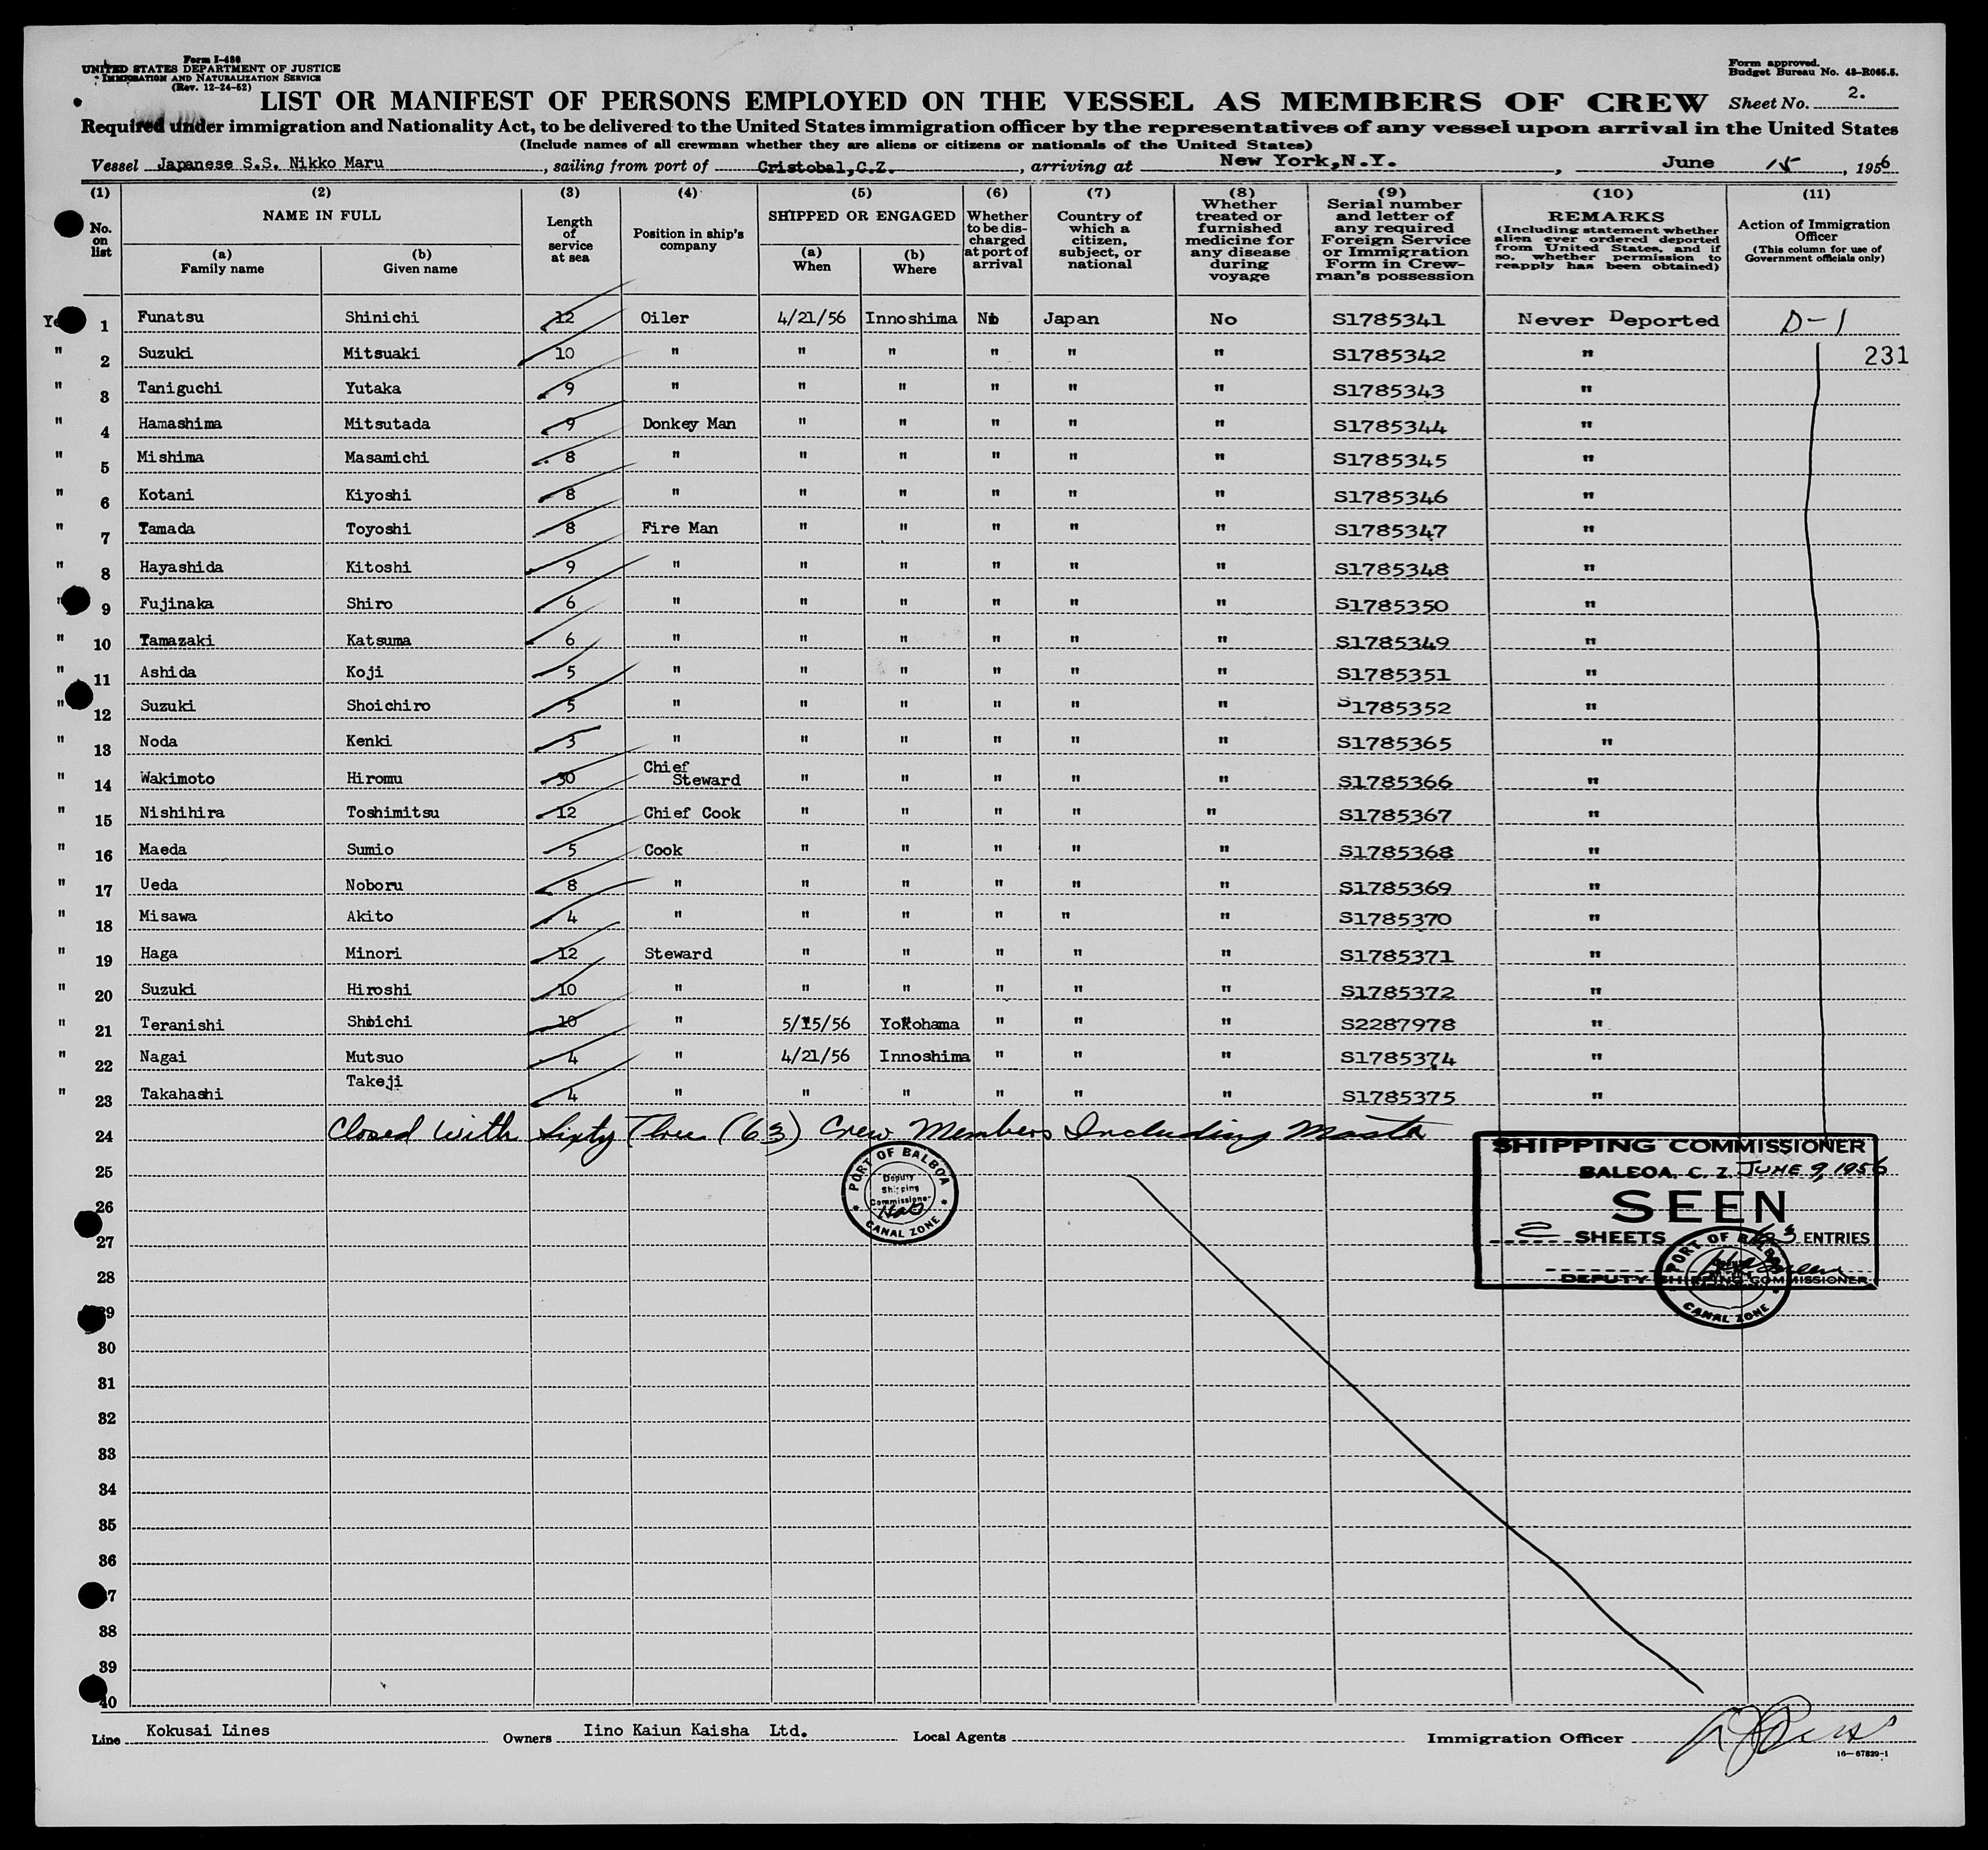 Form I-480
UNITED STATES DEPARTMENT OF JUSTICE
IMMIGRATION AND NATURALIZATION SERVICE
(Rev. 12-24-52)
Form approved.
Budget Bureau No. 43-R065.5.
LIST OR MANIFEST OF PERSONS EMPLOYED ON THE VESSEL AS MEMBERS OF CREW Sheet No. 2.
Required under immigration and Nationality Act, to be delivered to the United States immigration officer by the representatives of any vessel upon arrival in the United States
(Include names of all crewman whether they are aliens or citizens or nationals of the United States)
Vessel Japanese S.S. Nikko Maru, sailing from port of Cristobal,C.Z., arriving at New York,N.Y., June 15, 1956
(1) No. on list
(2) NAME IN FULL (a) Family name (b) Given name
(3) Length of service at sea
(4) Position in ship's company
(5) SHIPPED OR ENGAGED (a) When (b) Where
(6) Whether to be discharged at port of arrival
(7) Country of which a citizen, subject, or national
(8) Whether treated or furnished medicine for any disease during voyage
(9) Serial number and letter of any required Foreign Service or Immigration Form in Crewman's possession
(10) REMARKS (Including statement whether alien ever ordered deported from United States, and if so, whether permission to reapply has been obtained)
(11) Action of Immigration Officer (This column for use of Government officials only)
1 Funatsu Shinichi 12 Oiler 4/21/56 Innoshima No Japan No S1785341 Never Deported D-1
" 2 Suzuki Mitsuaki 10 " " " " " " S1785342 " 231
" 3 Taniguchi Yutaka 9 " " " " " " S1785343 "
" 4 Hamashima Mitsutada 9 Donkey Man " " " " " S1785344 "
" 5 Mishima Masamichi 8 " " " " " " S1785345 "
" 6 Kotani Kiyoshi 8 " " " " " " S1785346 "
" 7 Yamada Toyoshi 8 Fire Man " " " " " S1785347 "
" 8 Hayashida Kitoshi 9 " " " " " " S1785348 "
" 9 Fujinaka Shiro 6 " " " " " " S1785350 "
" 10 Yamazaki Katsuma 6 " " " " " " S1785349 "
" 11 Ashida Koji 5 " " " " " " S1785351 "
" 12 Suzuki Shoichiro 5 " " " " " " S1785352 "
" 13 Noda Kenki 3 " " " " " " S1785365 "
" 14 Wakimoto Hiromu 30 Chief Steward " " " " " S1785366 "
" 15 Nishihira Toshimitsu 12 Chief Cook " " " " " S1785367 "
" 16 Maeda Sumio 5 Cook " " " " " S1785368 "
" 17 Ueda Noboru 8 " " " " " " S1785369 "
" 18 Misawa Akito 4 " " " " " " S1785370 "
" 19 Haga Minori 12 Steward " " " " " S1785371 "
" 20 Suzuki Hiroshi 10 " " " " " " S1785372 "
" 21 Teranishi Shoichi 10 " 5/15/56 Yokohama " " " S2287978 "
" 22 Nagai Mutsuo 4 " 4/21/56 Innoshima " " " S1785374 "
" 23 Takahashi Takeji 4 " " " " " " S1785375 "
24 Closed with Sixty Three (63) Crew Members Including Master
25
26
27
28
30
31
32
33
34
35
36
38
39
40
PORT OF BALBOA
Deputy
Shipping
Commissioner
CANAL ZONE
SHIPPING COMMISSIONER
BALBOA, C. Z. JUNE 9, 1956
SEEN
2 SHEETS 63 ENTRIES
DEPUTY SHIPPING COMMISSIONER
PORT OF BALBOA
CANAL ZONE
Line Kokusai Lines Owners Iino Kaiun Kaisha Ltd. Local Agents Immigration Officer
16—67829-1